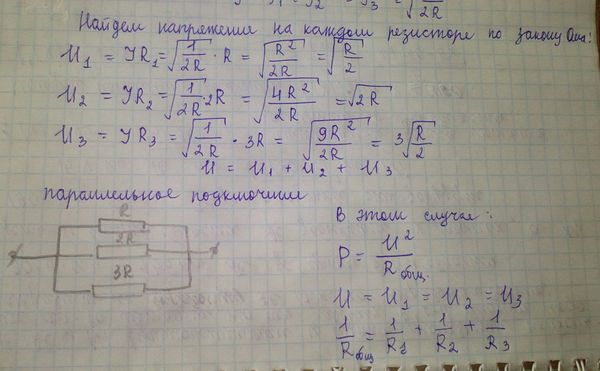 Найдем напряжение на каждом резисторе по закону Ома:
U₁ = IR₁ = √(1/2R) · R = √(R²/2R) = √(R/2)
U₂ = IR₂ = √(1/2R) 2R = √(4R²/2R) = √2R
U₃ = IR₃ = √(1/2R) · 3R = √(9R²/2R) = 3√(R/2)
U = U₁ + U₂ + U₃
параллельное подключение
R
2R
3R
В этом случае:
P = U²/Rобщ.
U = U₁ = U₂ = U₃
1/Rобщ = 1/R₁ + 1/R₂ + 1/R₃